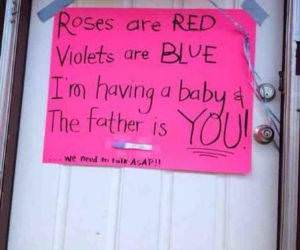 Roses are RED
Violets are BLUE
I'm having a baby &
The father is YOU!
.... we need to talk ASAP!!